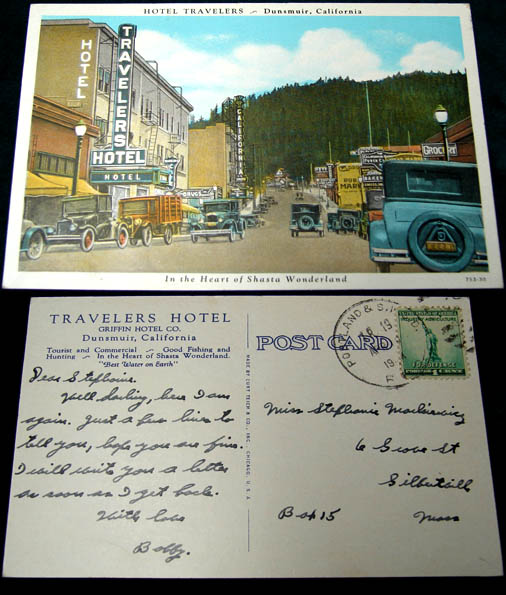 HOTEL TRAVELERS ~ Dunsmuir, California
HOTEL
TRAVELERS
HOTEL
HOTEL
DRUGS
CALIFORNIA
GROCERY
In the Heart of Shasta Wonderland
TRAVELERS HOTEL
GRIFFIN HOTEL CO.
Dunsmuir, California
Tourist and Commercial ~ Good Fishing and
Hunting ~ In the Heart of Shasta Wonderland.
"Best Water on Earth"
Dear Stephanie.
Well darling, here I am
again. Just a few lines to
tell you, hope you are fine.
I will write you a letter
as soon as I get back.
With love
Bobby.
MADE BY CURT TEICH & CO., INC., CHICAGO, U.S.A.
POST CARD
PORTLAND &
19
UNITED STATES OF AMERICA
INDUSTRY AGRICULTURE
FOR DEFENSE
Miss Stephanie
6 Grove St
Box 15
Mass